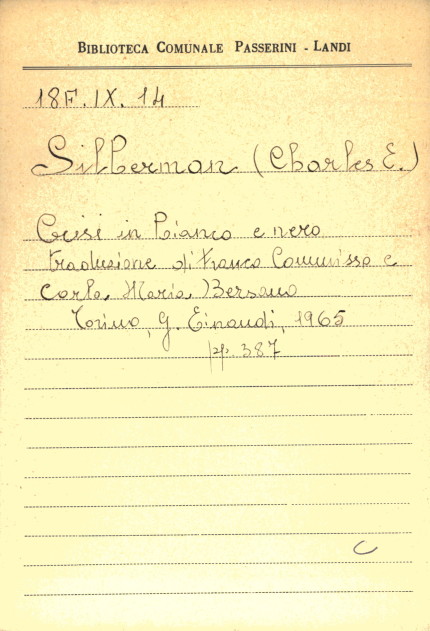 BIBLIOTECA COMUNALE PASSERINI - LANDI
18F.IX.14
Silberman (Charles E.)
Crisi in bianco e nero
traduzione di Franca Commisso e
Carla Maria Bersano
Torino, G. Einaudi, 1965
pp. 387
C